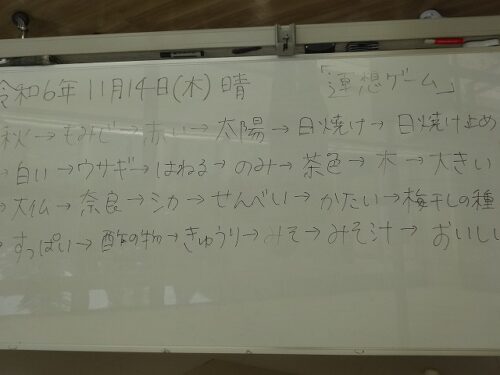 令和6年11月14日(木) 晴 「連想ゲーム」
秋→もみじ→赤い→太陽→日焼け→日焼け止め
→白い→ウサギ→はねる→のみ→茶色→木→大きい
→大仏→奈良→シカ→せんべい→かたい→梅干しの種
→すっぱい→酢の物→きゅうり→みそ→みそ汁→おいしい